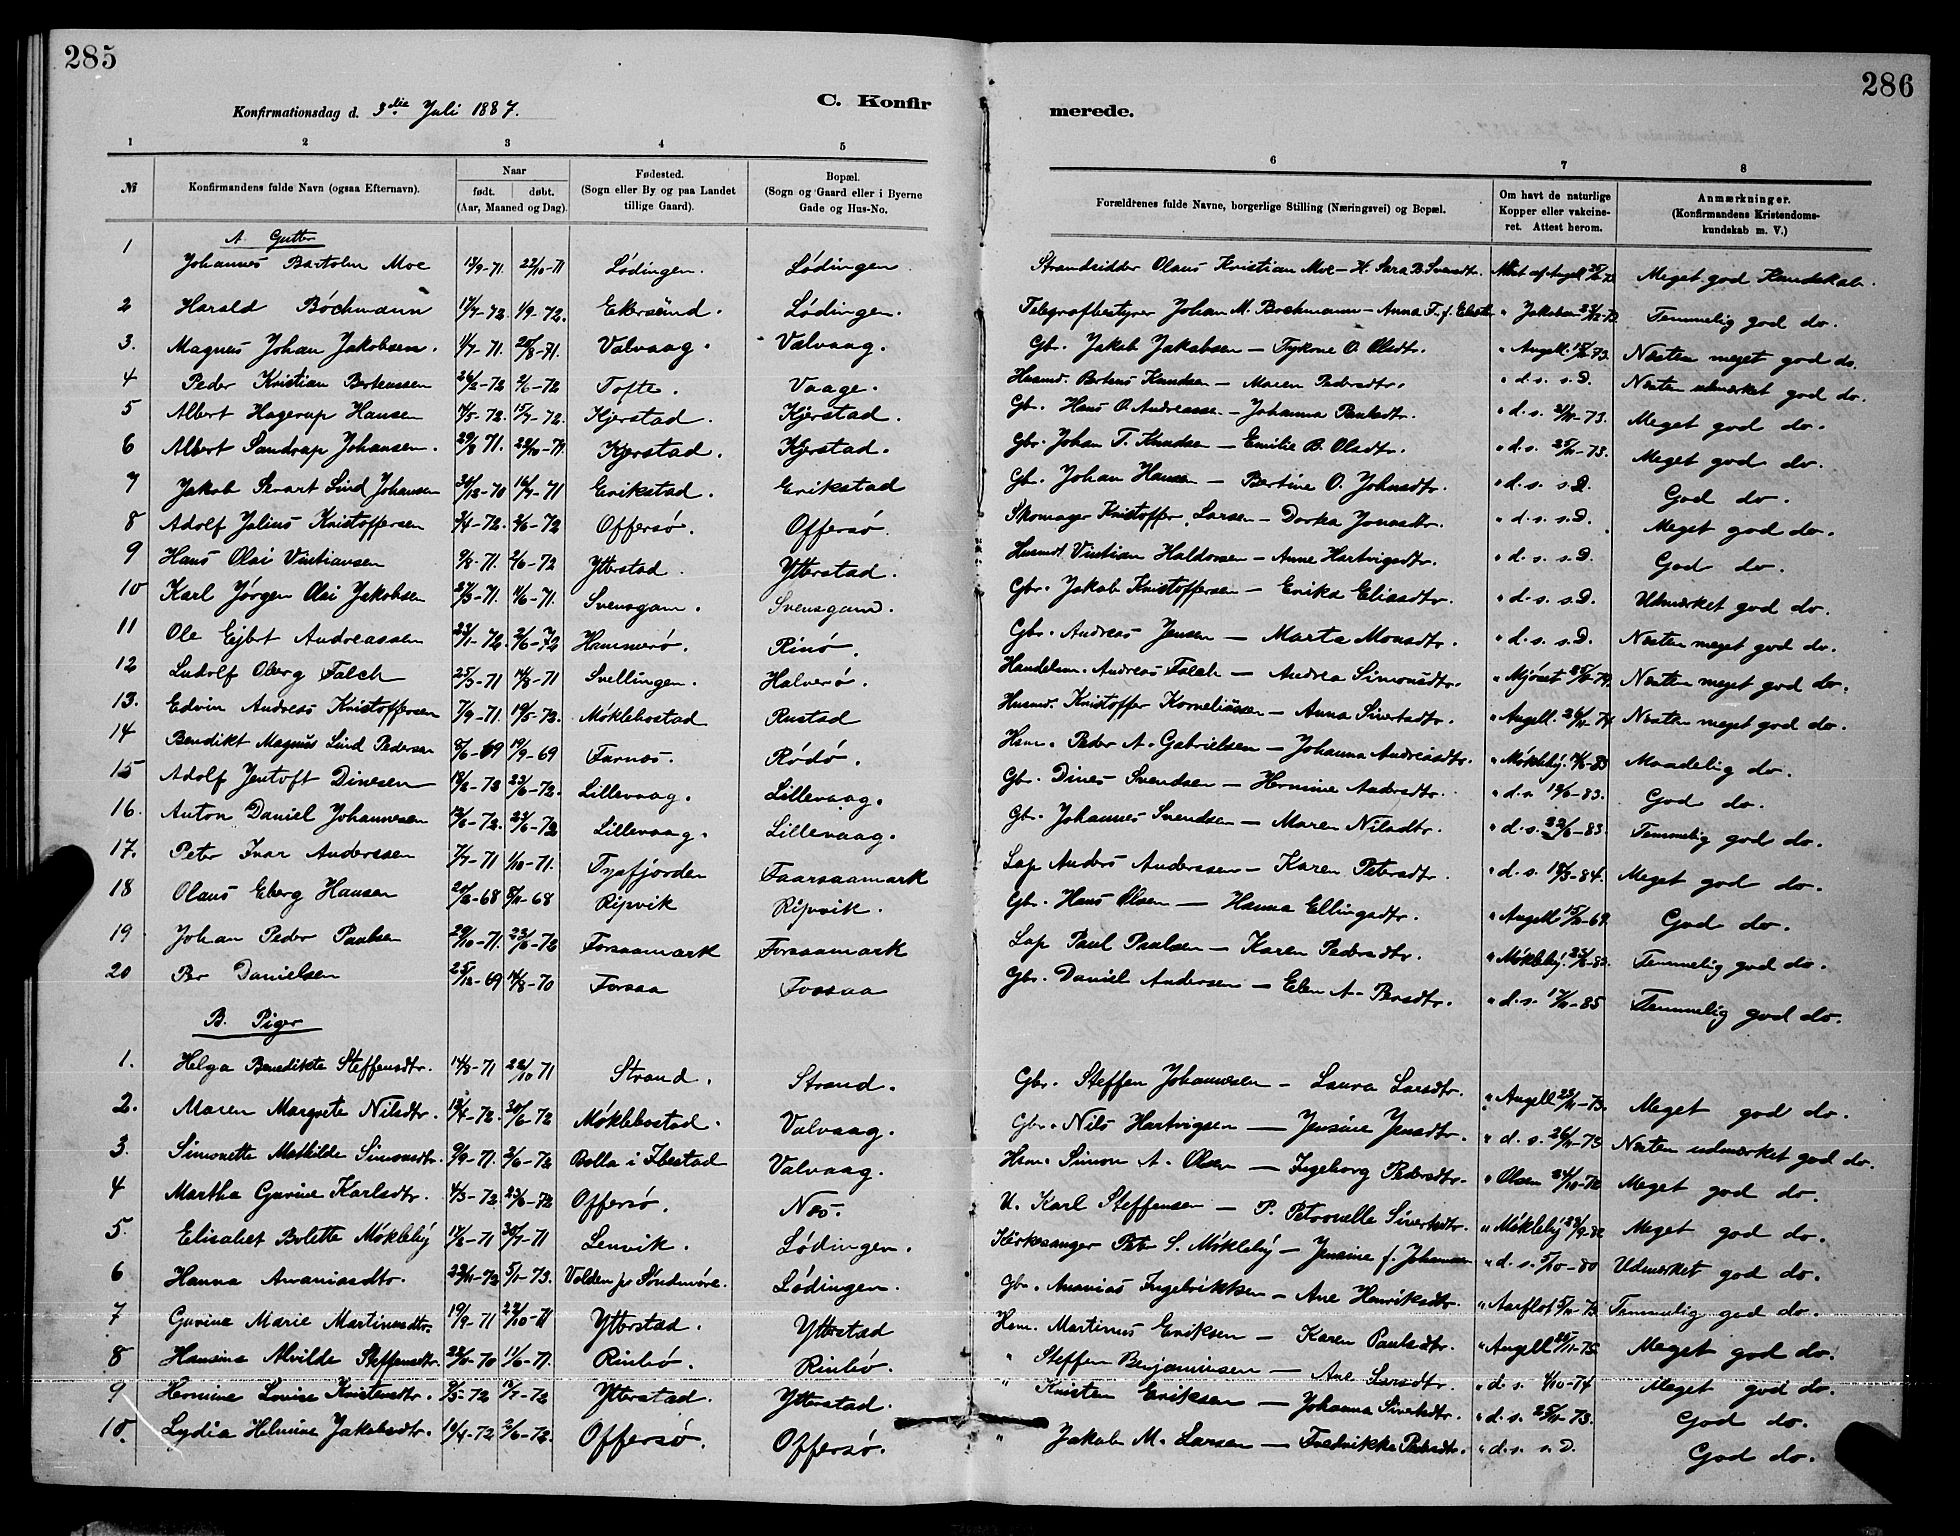 285
286
Konfirmationsdag d. 3die Juli 1887.
C. Konfir
merede.
1 2 3 4 5 6 7 8
№ Konfirmandens fulde Navn (ogsaa Efternavn). Naar født. døbt. (Aar, Maaned og Dag). Fødested. (Sogn eller By og paa Landet tillige Gaard). Bopæl. (Sogn og Gaard eller i Byerne Gade og Hus-No. Forældrenes fulde Navne, borgerlige Stilling (Næringsvei) og Bopæl. Om havt de naturlige Kopper eller vakcineret. Attest herom. Anmærkninger. (Konfirmandens Kristendomskundskab m. V.)
A. Gutter
1 Johannes Bartolm Moe 22/10-71 Lødingen. Lødingen. Strandsidder Olaus Kristian Moe - H. Sara B. Meget god Kundskab.
2 Harald Bøchmann 17/7-72. 1/9-72. Ekersund. Lødingen. Telegrafbestyrer Johan M. Bochmann - Anna F. f. " Jakobsen Temmelig god do.
3. Magnus Johan Jakobsen. 1/7-71. 20/8-71. Valvaag. Valvaag. Gb. Jakob Jakobsen - O. Olsdtr. " Angell Næsten meget god do.
4 Peder Kristian Berteussen 26/2-72 2/6-72 Tofte. Vaage. Husmd. Berteus Knudsen - Maren Pedersdtr. " d. s. s. D. Næsten udmærket god do.
5 Albert Hagerup Hansen 15/7-72. Kjerstad. Kjerstad. Gb. Hans O. Andreassen - Johanna Paulsdtr. " d. s. -73. Meget god do.
6 Albert Sandrap Johansen. 29/8 71. 22/10-71. Kjerstad. Kjerstad. Gbr. Johan T. Knudsen - Emilie B. Olsdtr. " d. s. 25/11-73. Meget god do.
7 Jakob Lind Johansen 30/12-70 16/7-71 Erikstad. Erikstad Gb. Johan Hansen - Bertine O. Johnsdtr. " d. s. s. D. God do.
8 Adolf Julius Kristoffersen 3/4-72. 2/6-72 Offersø. Offersø. Skomager Kristoffer Larsen - Dorka Jonasdtr. " d. s. s. D. Meget god do.
9 Hans Olai Vintiansen 9/8-71. 2/6-72 Ytterstad. Ytterstad. Husmd. Vintian Haldorsen - Anne Hartvigsdtr. " d. s. s. D. God do.
10 Karl Jørgen Olai Jakobsen 27/3-71. 11/6-71. Svensgam. Svensgam. Gbr. Jakob Kristoffersen - Erika Eliasdtr. " d. s. s. D. Udmærket god do.
11 Ole Ejbert Andreassen 23/1-72. 2/6-72 Hammerø. Rinø. Gbr. Andreas Jensen - Marta Monsdtr. " d. s. s. D. Næsten meget god do.
12 Ludolf Oberg Falch 25/3-71 14/8-71 Svellingen. Halverø. Handelsm. Andreas Falch - Andrea Simonsdtr. " Næsten meget god do.
13. Edvin Andreas Kristoffersen 7/9-71. 19/5-72. Møklebostad Rustad Husmd. Kristoffer Korneliussen - Anna Sivertsdtr. " Angell. 26/11-74 Næsten meget god do.
14 Benedikt Magnus Lind Pedersen 8/6-69 19/9-69 Farnes. Rødø. Hsm. Peder A. Gabrielsen - Johanna Andreasdtr. " Møkleby. Maadelig do.
15 Adolf Jentoft Dinesen 23/6-72. Lillevaag. Lillevaag. Gb. Dines Svendsen - Hernine Andersdtr. " d. s. 19/6-83. God do.
16. Anton Daniel Johannesen 23/6-72 Lillevaag. Lillevaag. Gb. Johannes Svendsen - Maren Nilsdtr. " d. s. 22/6-83. Temmelig god do.
17. Peter Ivar Anderssen 7/7-71 1/10-71. Tysfjorden Faarsaamark Lap Anders Anderssen - Karen Petersdtr. " d. s. 18/3-84. Meget god do.
18 Olaus Eberg Hansen 20/6-68 8/11-68 Ripvik Ripvik. Gb. Hans Olsen - Hanna Ellingsdtr. " Angell 15/10-69. God do.
19 Johan Peder Paulsen 29/10-71. 23/6-72 Forsaamark Forsaamark Lap Paul Paulsen - Karen Pedersdtr. " Møkleby. Temmelig god do.
20 Per Danielsen 25/12-69 14/8-70 Forsaa Forsaa Gbr. Daniel Andersen - Elen A. Persdtr. " d. s. -85 Temmelig god do.
B. Piger
1. Helga Benedikte Steffensdtr. 14/8-71 22/10 71 Strand. Strand. Gbr. Steffen Johannesen - Laura Larsdtr. " Angell Meget god do.
2. Maren Margrete Nilsdtr. 12/4-72. 30/6-72 Møklebostad. Valvaag. Gbr. Nils Hartvigsen - Jensine Jensdtr. " d. s. Næsten udmærket god do.
3. Simonette Mathilde Simonsdtr. 9/9-71. 2/6-72 Bolla i Ibestad Valvaag. Hsm. Simon A. Olsen - Ingeborg Pedersdtr. " Olsen Meget god do.
4 Martha Gurine Karlsdtr. 4/3-72 23/6-72 Offersø. Næs. U. Karl Steffensen - P. Petronelle Sivertsdtr. " Møkleby Meget god do.
5 Elisabet Bolette Møkleby 30/7-71 Lenvik. Lødingen. Kirkesanger Peter S. Møkleby - Jensine f. Johansen " d. s. 5/10-80 Udmærket god do.
6 Hanna Ananiasdtr. 23/11-72 5/1-73. Volden på Søndmøre. Lødingen. Gbr. Ananias Ingebrikksen - Ane Henriksdtr. " Aarflot Temmelig god do.
7 Gurine Marie Martinusdtr. 19/9-71 22/10-71 Ytterstad. Ytterstad Hsm. Martinus Eriksen - Karen Paulsdtr. " Angell Meget god do.
8 Hansina Alvilde Steffensdtr. 11/6-71. Rinbø. Rinbø. " Steffen Benjaminsen - Ane Larsdtr. " d. s. 4/10-74 Meget god do.
9 Hernine Lovise Kristensdtr. 9/5-72 7/7-72 Ytterstad. Ytterstad. " Kristen Eriksen - Johanna Sivertsdtr. " d. s. 25/11-73. God do.
10. Lydia Helmine Jakobsdtr. 10/4-72 2/6-72. Offersø. Offersø. " Jakob M. Larsen - Fredrikke Pedersdtr. " d. s. s. D. God do.